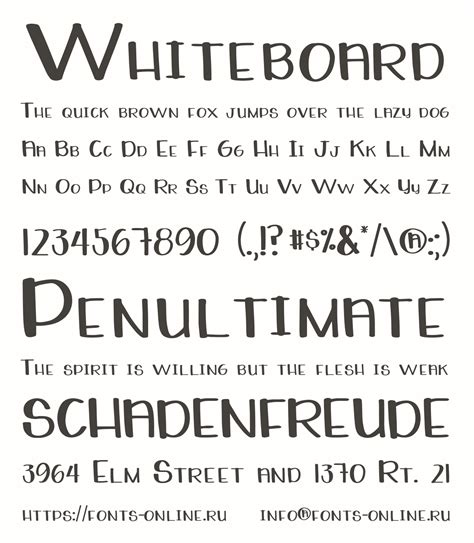 Whiteboard
The quick brown fox jumps over the lazy dog
Aa Bb Cc Dd Ee Ff Gg Hh Ii Jj Kk Ll Mm
Nn Oo Pp Qq Rr Ss Tt Uu Vv Ww Xx Yy Zz
1234567890 (.,!?#$%&*/\@:;)
Penultimate
The spirit is willing but the flesh is weak
SCHADENFREUDE
3964 Elm Street and 1370 Rt. 21
https://fonts-online.ru info@fonts-online.ru